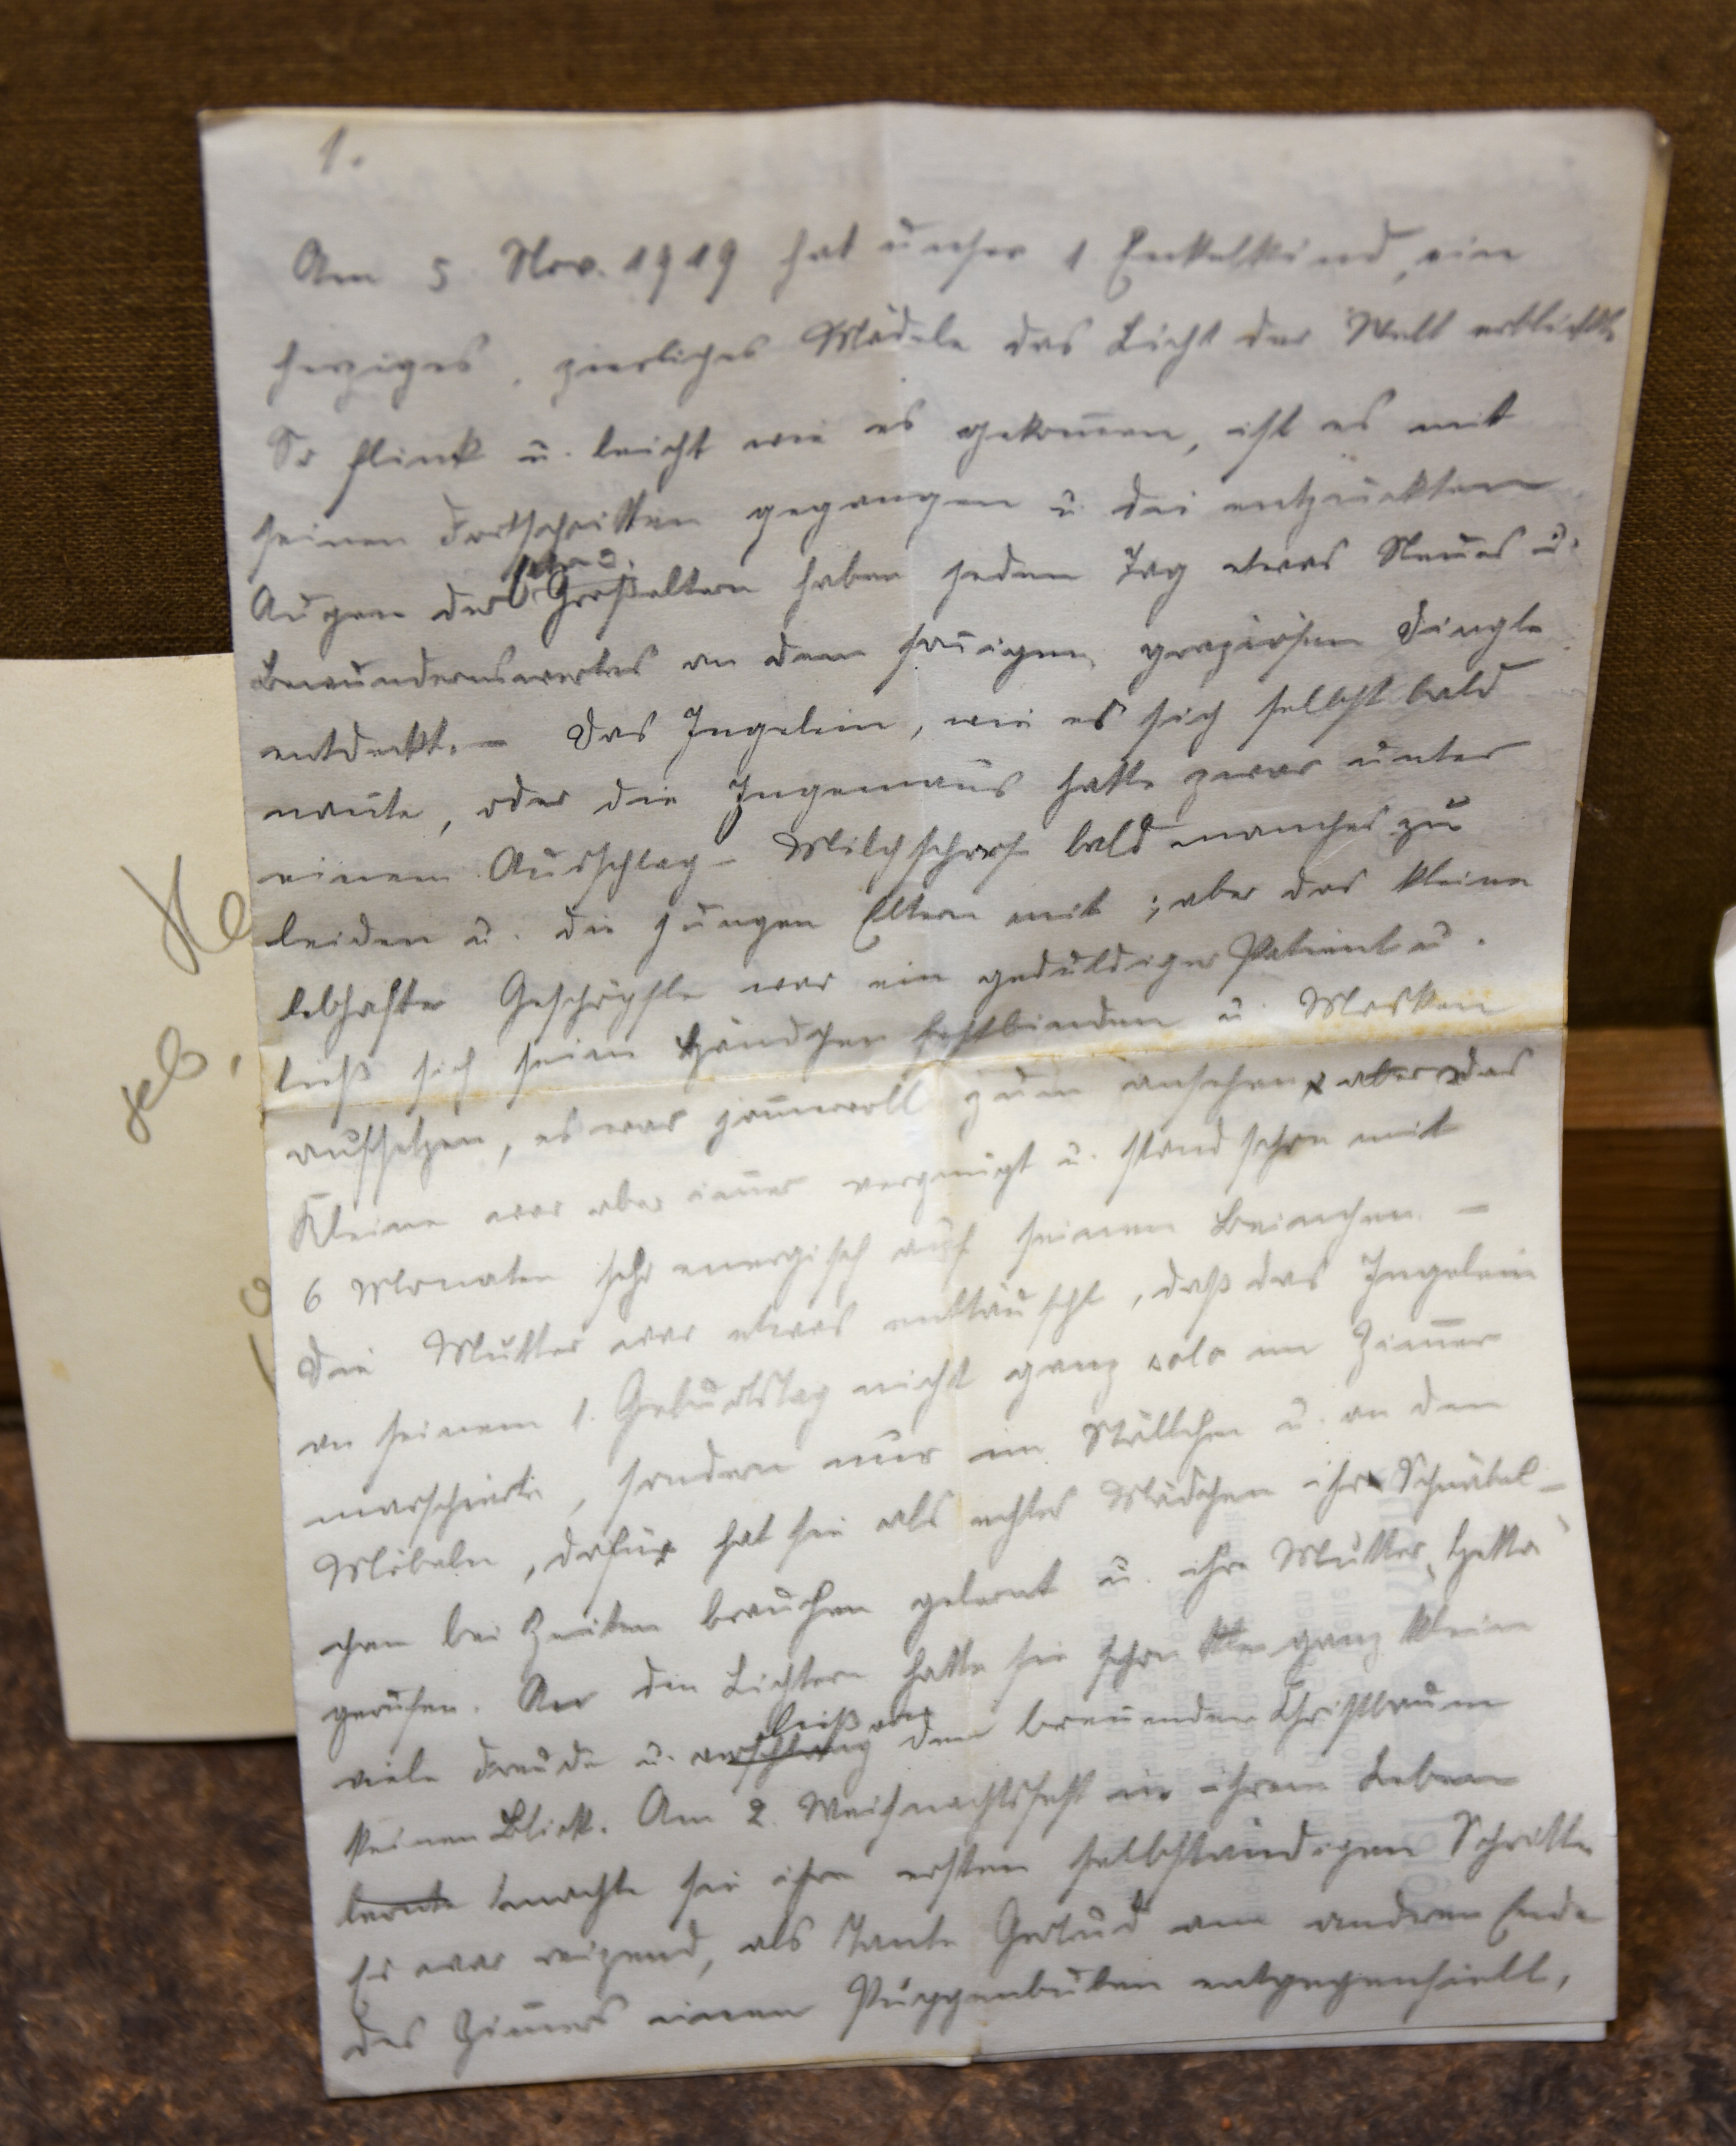 1.
Am 5. Nov. 1919 hat unser 1. Enkelkind, ein
herziges, zierliches Mädele das Licht der Welt erblickt.
So flink u. leicht wie es gekom̄en, ist es mit
seinen Fortschritten gegangen u. die entzückten
Augen der Großeltern haben jeden Tag etwas Neues u.
Bewundernswertes an dem graziösen Dingle
entdeckt. – Das Ingelein, wie es sich selbst bald
nan̄te, oder die Ingemaus hatte zwar unter
einem Ausschlag – Milchschorf bald manches zu
leiden u. die jungen Eltern mit; aber das kleine
lebhafte Geschöpfle war ein geduldiger Patient u.
ließ sich seine Händchen festbinden u. Masken
aufsetzen, es war jam̄ervoll zum ansehen, aber das
Kleine war aber im̄er vergnügt u. stand schon mit
6 Monaten sehr energisch auf seinen Beinchen. –
Die Mutter war etwas enttäuscht, daß das Ingelein
an seinem 1. Geburtstag nicht ganz solo im Zim̄er
marschierte, sondern nur im Ställchen u. an den
Möbeln, dafür hat sie als echtes Mädchen ihr Schnäbel-
chen bei Zeiten brauchen gelernt u. ihre Mutter „Hetta“
gerufen. An den Lichtern hatte sie schon ganz klein
ließ von
viele Freude u. dem bren̄enden Christbaum
keinen Blick. Am 2. Weihnachtsfest in ihrem Leben
lernte machte sie ihre ersten selbstständigen Schritte
Es war reizend, als Tante Gertrud am anderen Ende
des Zim̄ers einen Puppenbuben entgegenhielt,
He
geb.